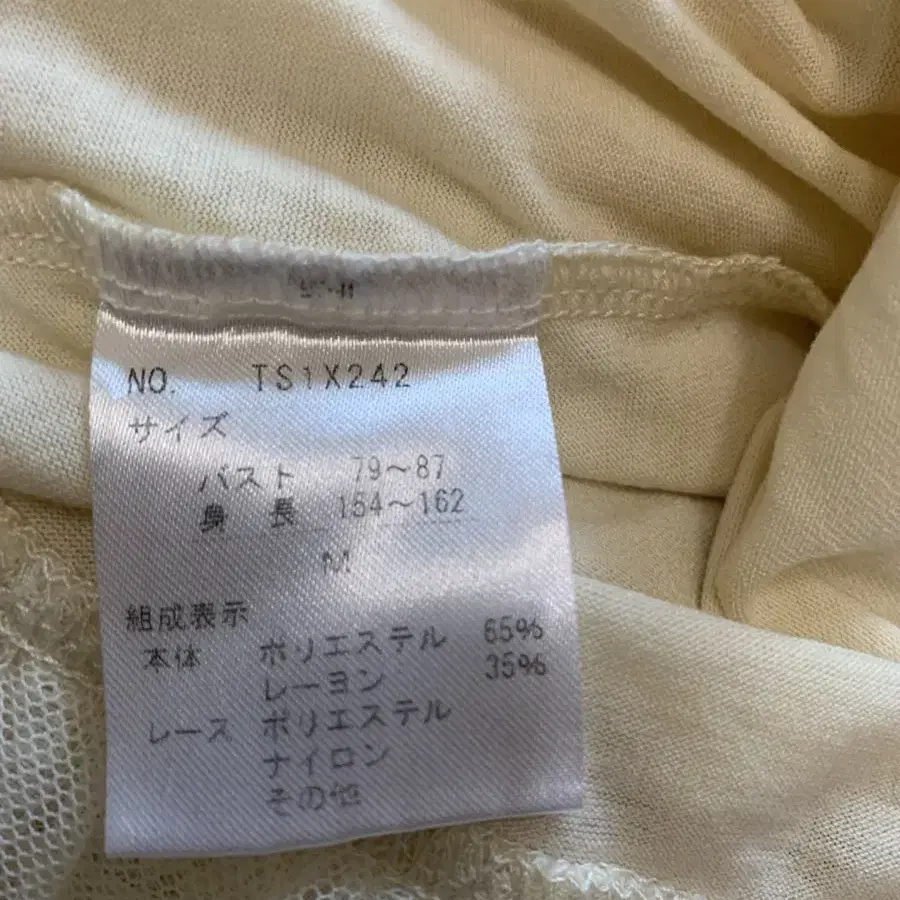 NO. TS1X242
サイズ
バスト 79～87
身長 154～162
M
組成表示
本体 ポリエステル 65%
レーヨン 35%
レース ポリエステル
ナイロン
その他